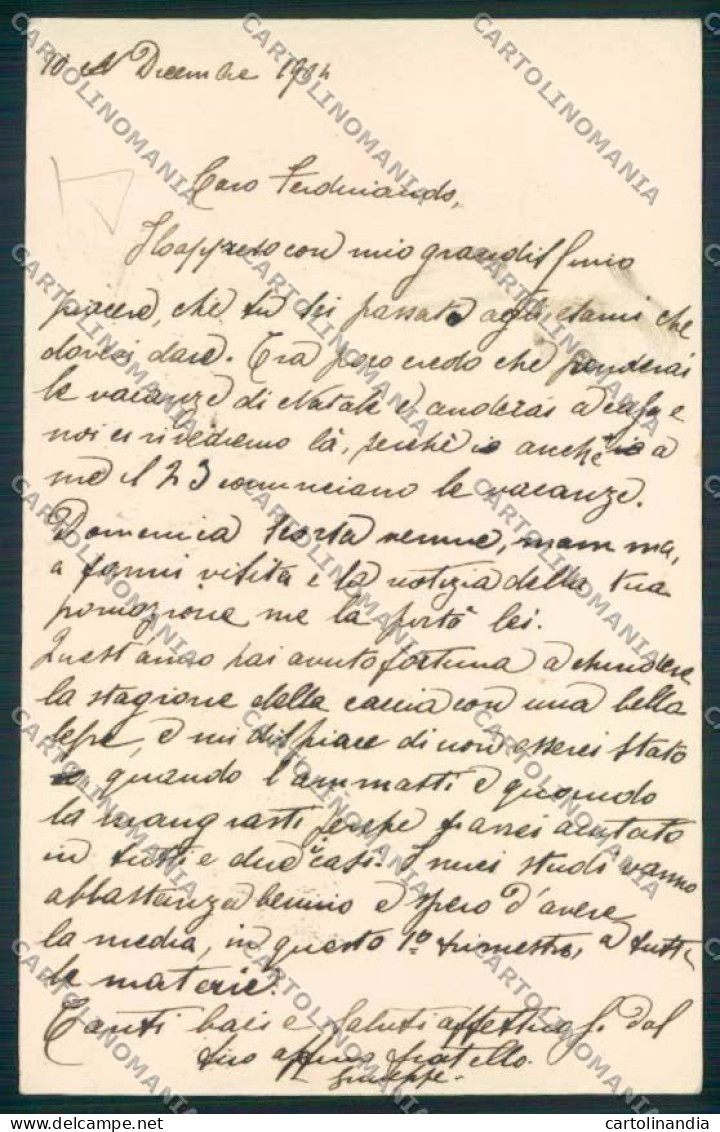 10 Dicembre 1904
Caro Ferdinando,
Ho appreso con mio grandissimo
piacere, che tu sei passato agli esami che
dovevi dare. Tra poco credo che prenderai
le vacanze di Natale e anderai a casa e
noi ci rivedremo là, perchè io anche a
me il 23 cominciano le vacanze.
Domenica scorsa venne, mamma,
a farmi visita e la notizia della tua
promozione me la portò lei.
Quest'anno hai avuto fortuna a chiudere
la stagione della caccia con una bella
lepre, e mi dispiace di non esserci stato
quando l'ammasti e quando
la mangiasti perchè t'avrei aiutato
in tutti e due i casi. I miei studi vanno
abbastanza benino e spero d'avere
la media, in questo 1º trimestre, a tutte
le materie.
Tanti baci e saluti affettuosi dal
tuo affmo fratello
Giuseppe.
CARTOLINOMANIA
cartolinandia